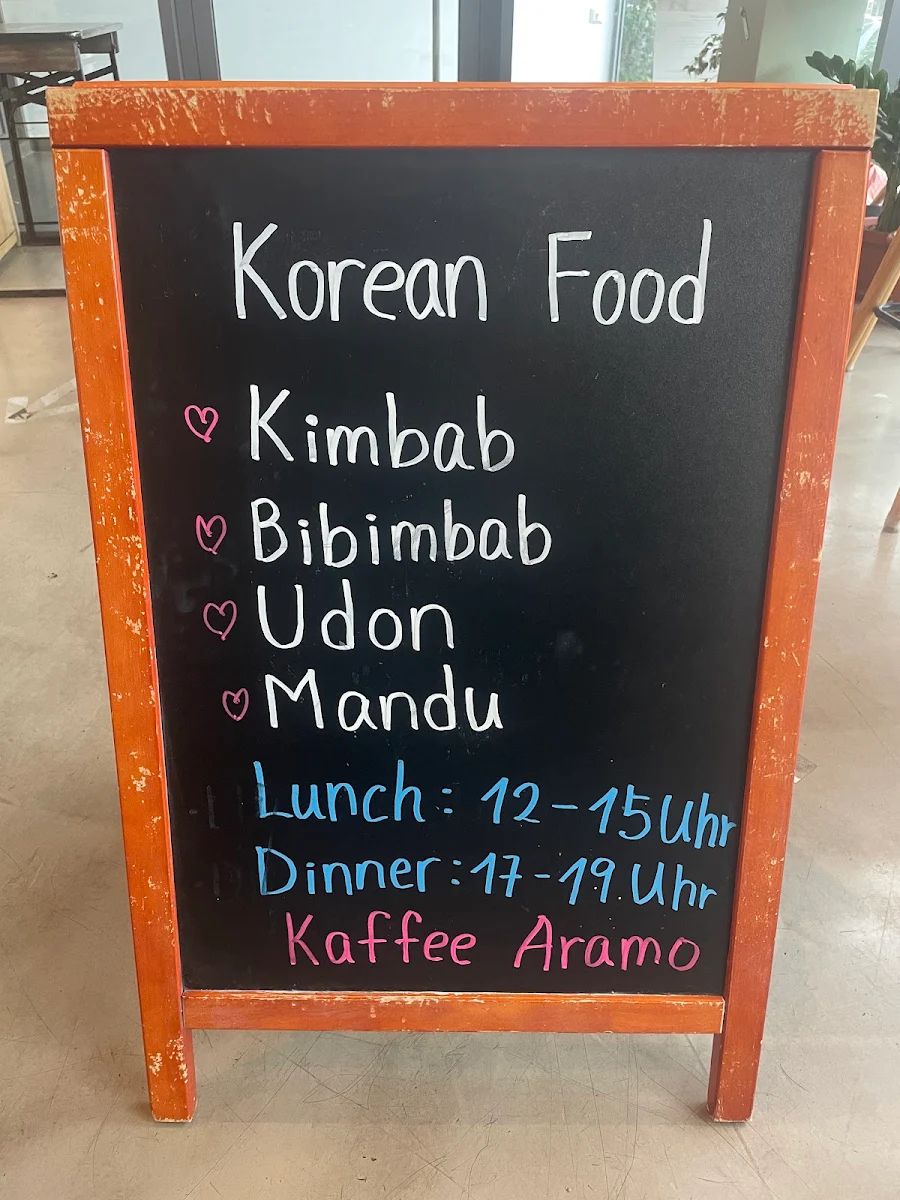 Korean Food
♡ Kimbab
♡ Bibimbab
♡ Udon
♡ Mandu
Lunch: 12-15 Uhr
Dinner: 17-19 Uhr
Kaffee Aramo